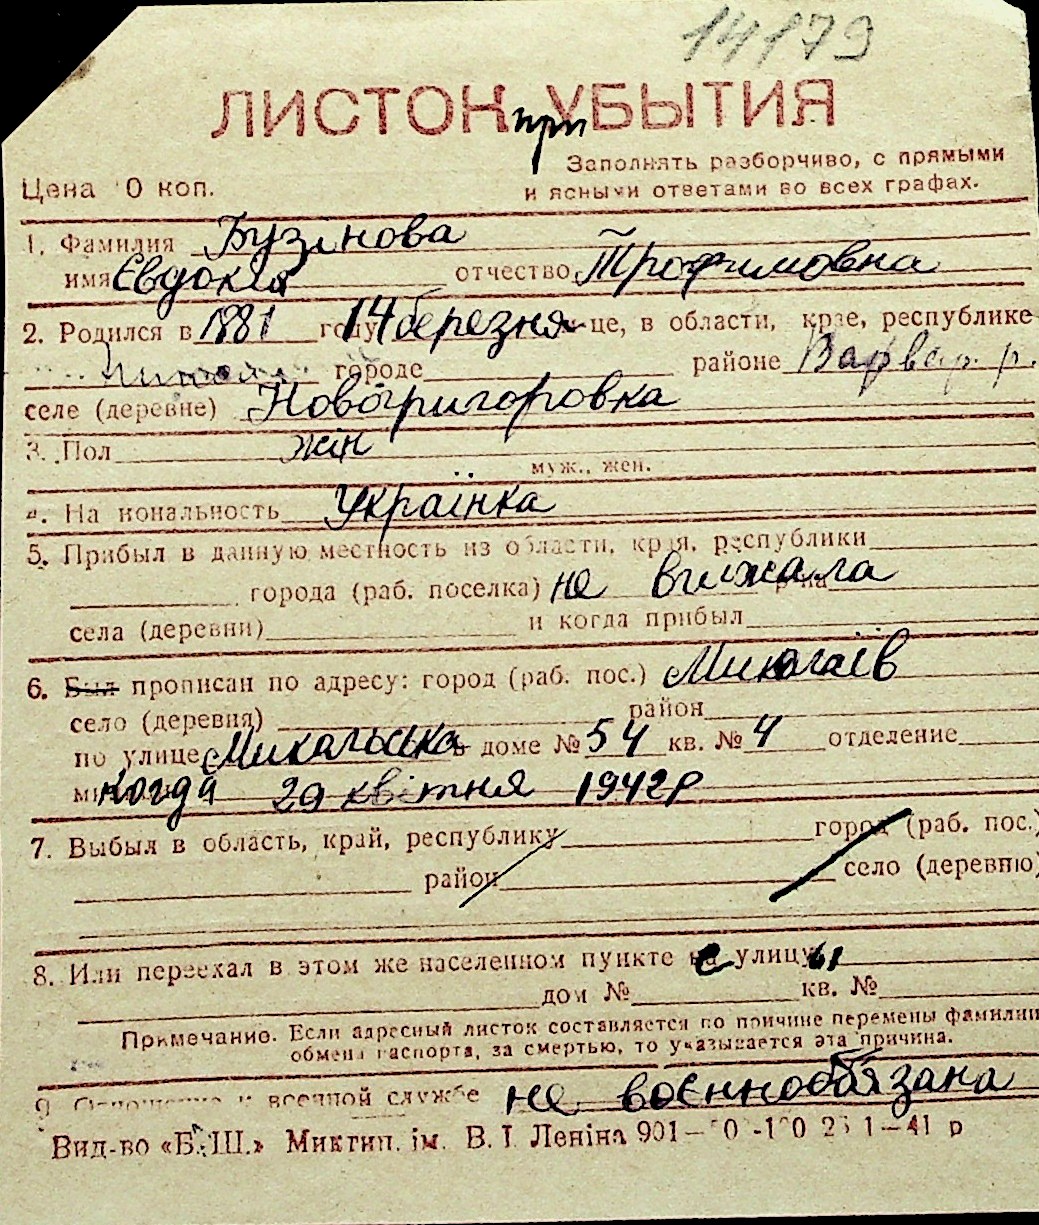 14179
ЛИСТОК при УБЫТИЯ
Заполнять разборчиво, с прямыми
и ясными ответами во всех графах.
Цена 0 коп.
1. Фамилия Бузінова
имя Євдокія отчество Трофимовна
2. Родился в 1881 году 14 березня це, в области, крае, республике
городе районе Варвар. р.
селе (деревне) Новогригоровка
3. Пол жін
муж., жен.
4. На иональность Українка
5. Прибыл в данную местность из области, края, республики
города (раб. поселка) не виїжала
села (деревни) и когда прибыл
6. Был прописан по адресу: город (раб. пос.) Миколаїв
село (деревня) район
по улице Микальська в доме № 54 кв. № 4 отделение
когда 29 квітня 1942р
7. Выбыл в область, край, республику город (раб. пос.)
район село (деревню)
8. Или переехал в этом же населенном пункте с улицы
дом № кв. №
Примечание. Если адресный листок составляется по причине перемены фамилии
обмена паспорта, за смертью, то указывается эта причина.
9. Отношение к военной службе не воєннообязана
Вид-во «Б.Ш.» Миктип. ім. В. І. Леніна 901— 41 р